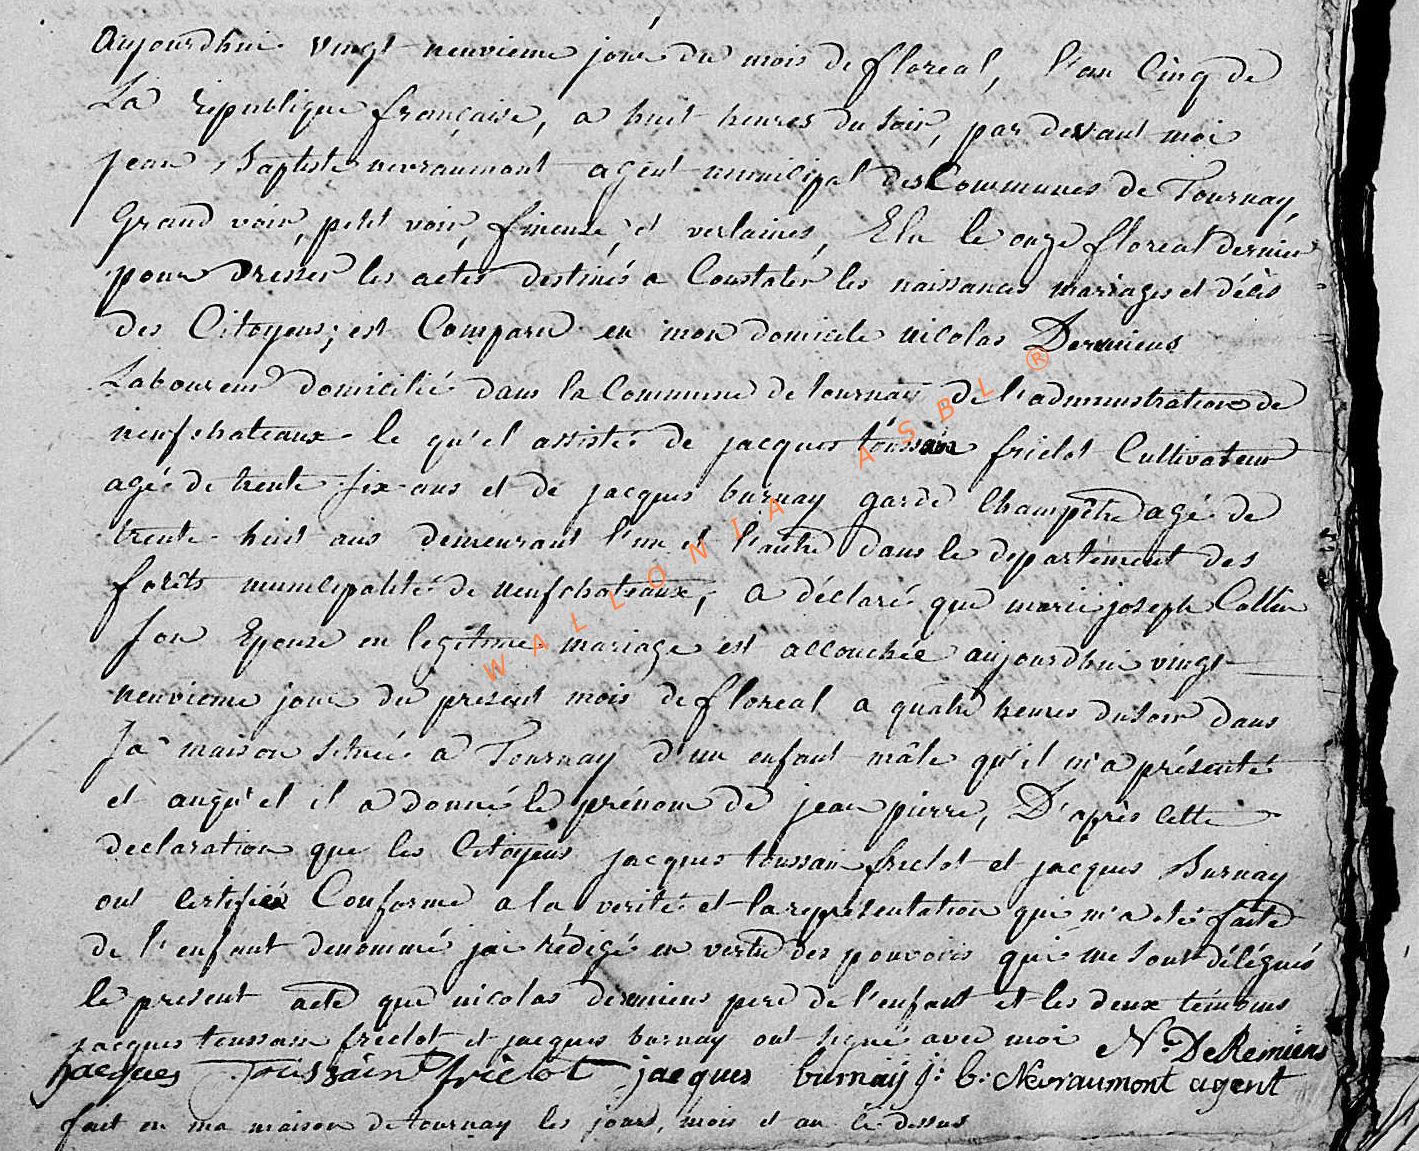 Aujourdhui vingt neuvieme jour du mois de floreal, l'an Cinq de
La republique française, a huit heures du soir, par devant moi
jean Baptiste nevraumont agent municipal des Communes de Tournay,
Grand voir, petit voir, fineuse, et verlaines, Elu le onze floreal dernier
pour dresser les actes destinés a Constater les naissances mariages et décès
des Citoyens; est Comparu en mon domicile nicolas Deremiens
Laboureur domicilié dans la Commune de tournay de l'administration de
neufchateaux le qu'el assisté de jacques toussain frielot Cultivateur
agé de trente six ans et de jacques burnay garde Champêtre agé de
trente huit ans demeurant l'un et l'autre dans le departement des
forêts municipalité de neufchateaux, a déclaré que marie joseph Collin
son Epouse en legitime mariage est accouchée aujourdhui vingt
neuvieme jour du present mois de floreal a quatre heures du soir dans
sa maison située a Tournay d'un enfant mâle qu'il m'a présenté
et auqu'el il a donné le prénom de jean pierre, D'après cette
declaration que les Citoyens jacques toussain frielot et jacques Burnay
ont certifiée Conforme a la verité et la representation qui m'a été faite
de l'enfant denommé jai rédigé en vertu des pouvoirs qui me sont délégués
le present acte que nicolas deremiens pere de l'enfant et les deux témoins
jacques toussain frielot et jacques burnay ont signé avec moi N. DeRemiens
jacques Toussaint frielot jacques burnaÿ j: b: Nevraumont agent
fait en ma maison de tournay les jours, mois et an ci dessus
WALLONIA ASBL ®